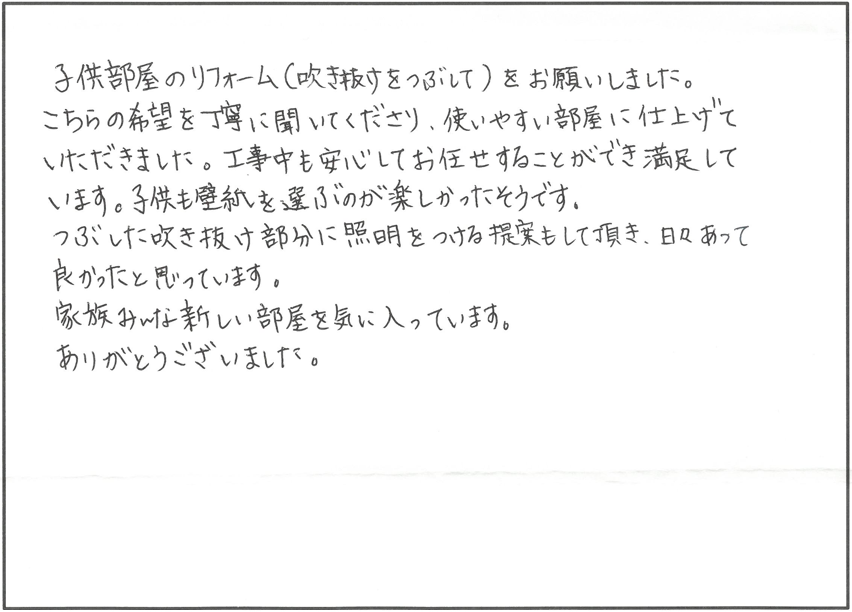 子供部屋のリフォーム(吹き抜けをつぶして)をお願いしました。
こちらの希望を丁寧に聞いてくださり、使いやすい部屋に仕上げて
いただきました。工事中も安心してお任せすることができ満足して
います。子供も壁紙を選ぶのが楽しかったそうです。
つぶした吹き抜け部分に照明をつける提案もして頂き、日々あって
良かったと思っています。
家族みんな新しい部屋を気に入っています。
ありがとうございました。